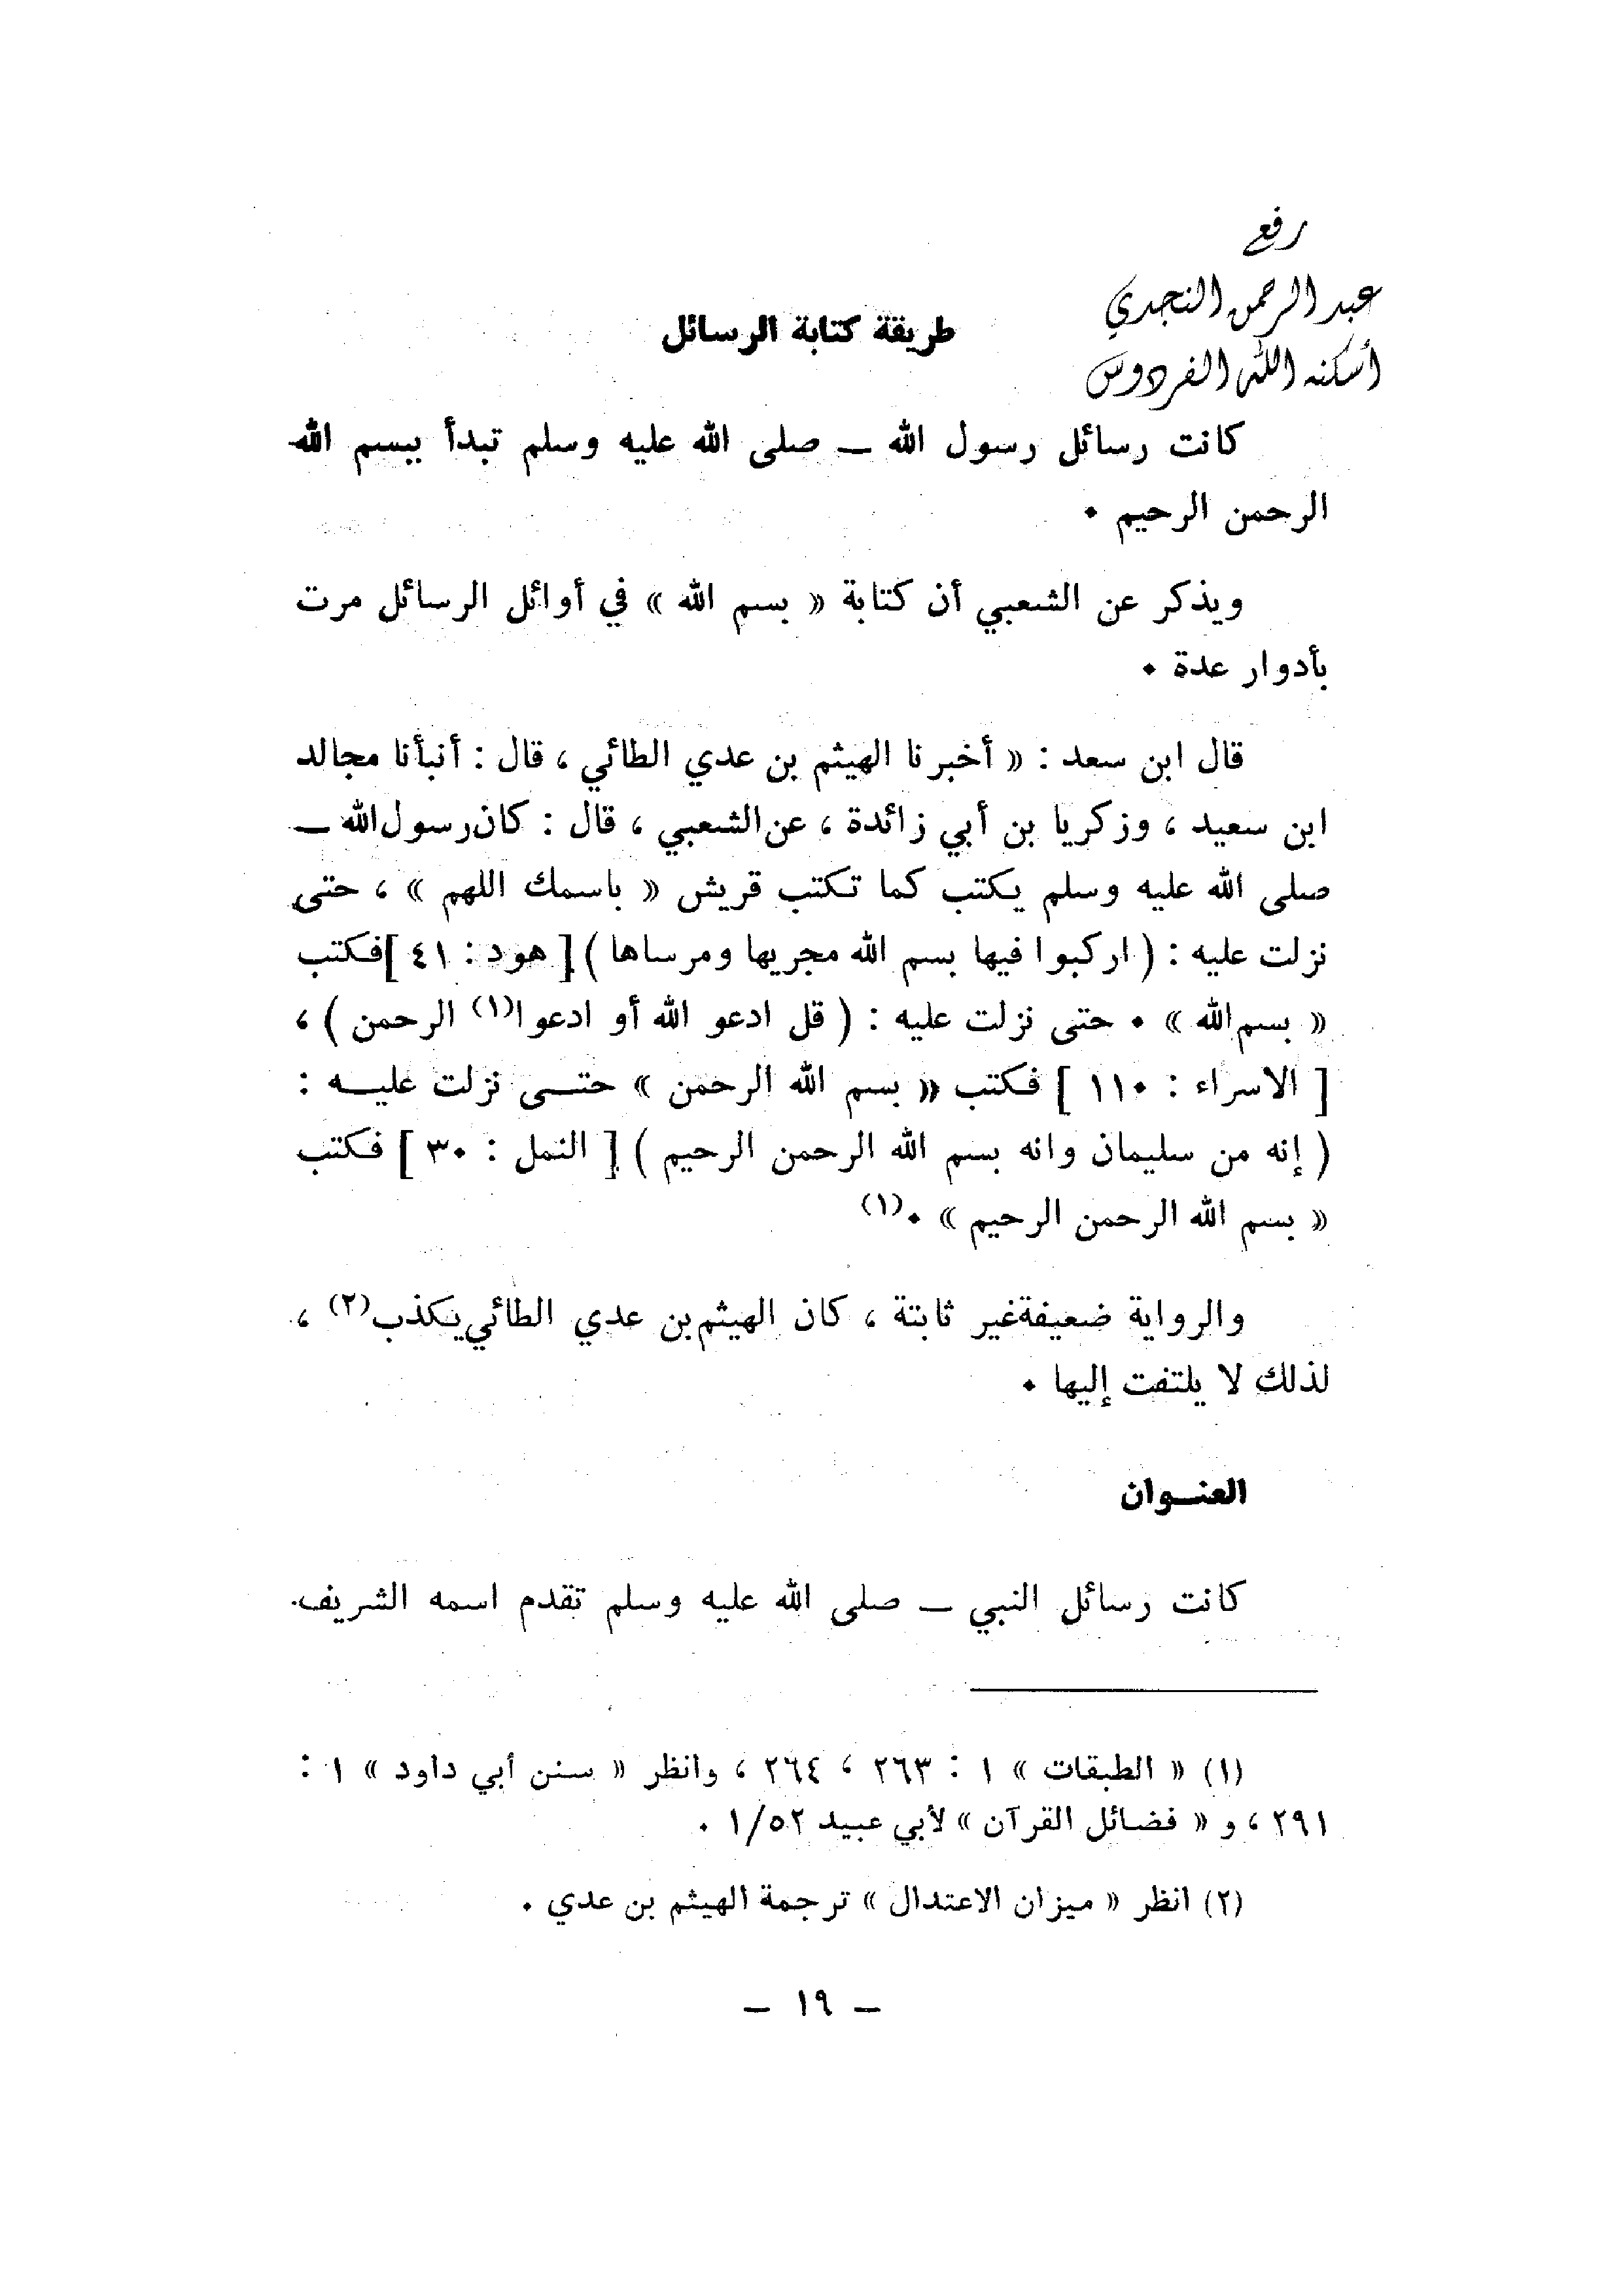 رفع
عبد الرحمن النجدي
أسكنه الله الفردوس
طريقة كتابة الرسائل
كانت رسائل رسول الله ــ صلى الله عليه وسلم تبدأ ببسم الله
الرحمن الرحيم ٠
ويذكر عن الشعبي أن كتابة « بسم الله » في أوائل الرسائل مرت
بأدوار عدة ٠
قال ابن سعد : « أخبرنا الهيثم بن عدي الطائي ، قال : أنبأنا مجالد
ابن سعيد ، وزكريا بن أبي زائدة ، عن الشعبي ، قال : كان رسول الله ــ
صلى الله عليه وسلم يكتب كما تكتب قريش « باسمك اللهم » ، حتى
نزلت عليه : ( اركبوا فيها بسم الله مجريها ومرساها ) [ هود : ٤١ ] فكتب
« بسم الله » ٠ حتى نزلت عليه : ( قل ادعو الله أو ادعوا(١) الرحمن ) ،
[ الاسراء : ١١٠ ] فكتب « بسم الله الرحمن » حتــى نزلت عليــه :
( إنه من سليمان وانه بسم الله الرحمن الرحيم ) [ النمل : ٣٠ ] فكتب
« بسم الله الرحمن الرحيم » ٠(١)
والرواية ضعيفة غير ثابتة ، كان الهيثم بن عدي الطائي يكذب(٢) ،
لذلك لا يلتفت إليها ٠
العنــوان
كانت رسائل النبي ــ صلى الله عليه وسلم تقدم اسمه الشريف
(١) « الطبقات » ١ : ٢٦٣ ، ٢٦٤ ، وانظر « سنن أبي داود » ١ :
٢٩١ ، و « فضائل القرآن » لأبي عبيد ١/٥٢ .
(٢) انظر « ميزان الاعتدال » ترجمة الهيثم بن عدي .
ــ ١٩ ــ